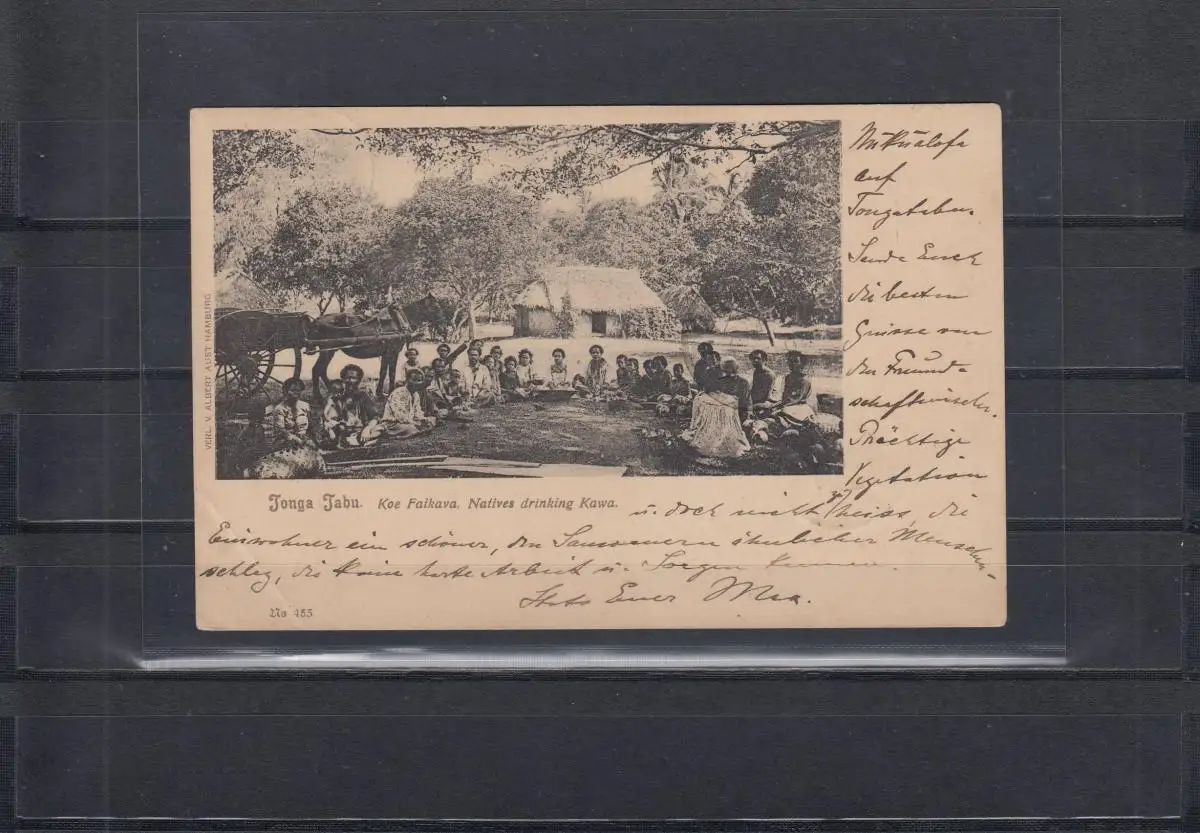 VERL. V. ALBERT AUST HAMBURG
Tonga Tabu. Koe Faikava. Natives drinking Kawa.
Nukualofa
auf
Tongatabu.
Sende Euch
die besten
Grüsse von
den Freund-
schaftsinseln.
Prächtige
Vegetation
u. doch nicht zu heiss, die
Einwohner ein schöner, den Samoanern ähnlicher Menschen-
schlag, die keine harte Arbeit u. Sorgen kennen.
Stets Euer Max.
No 455